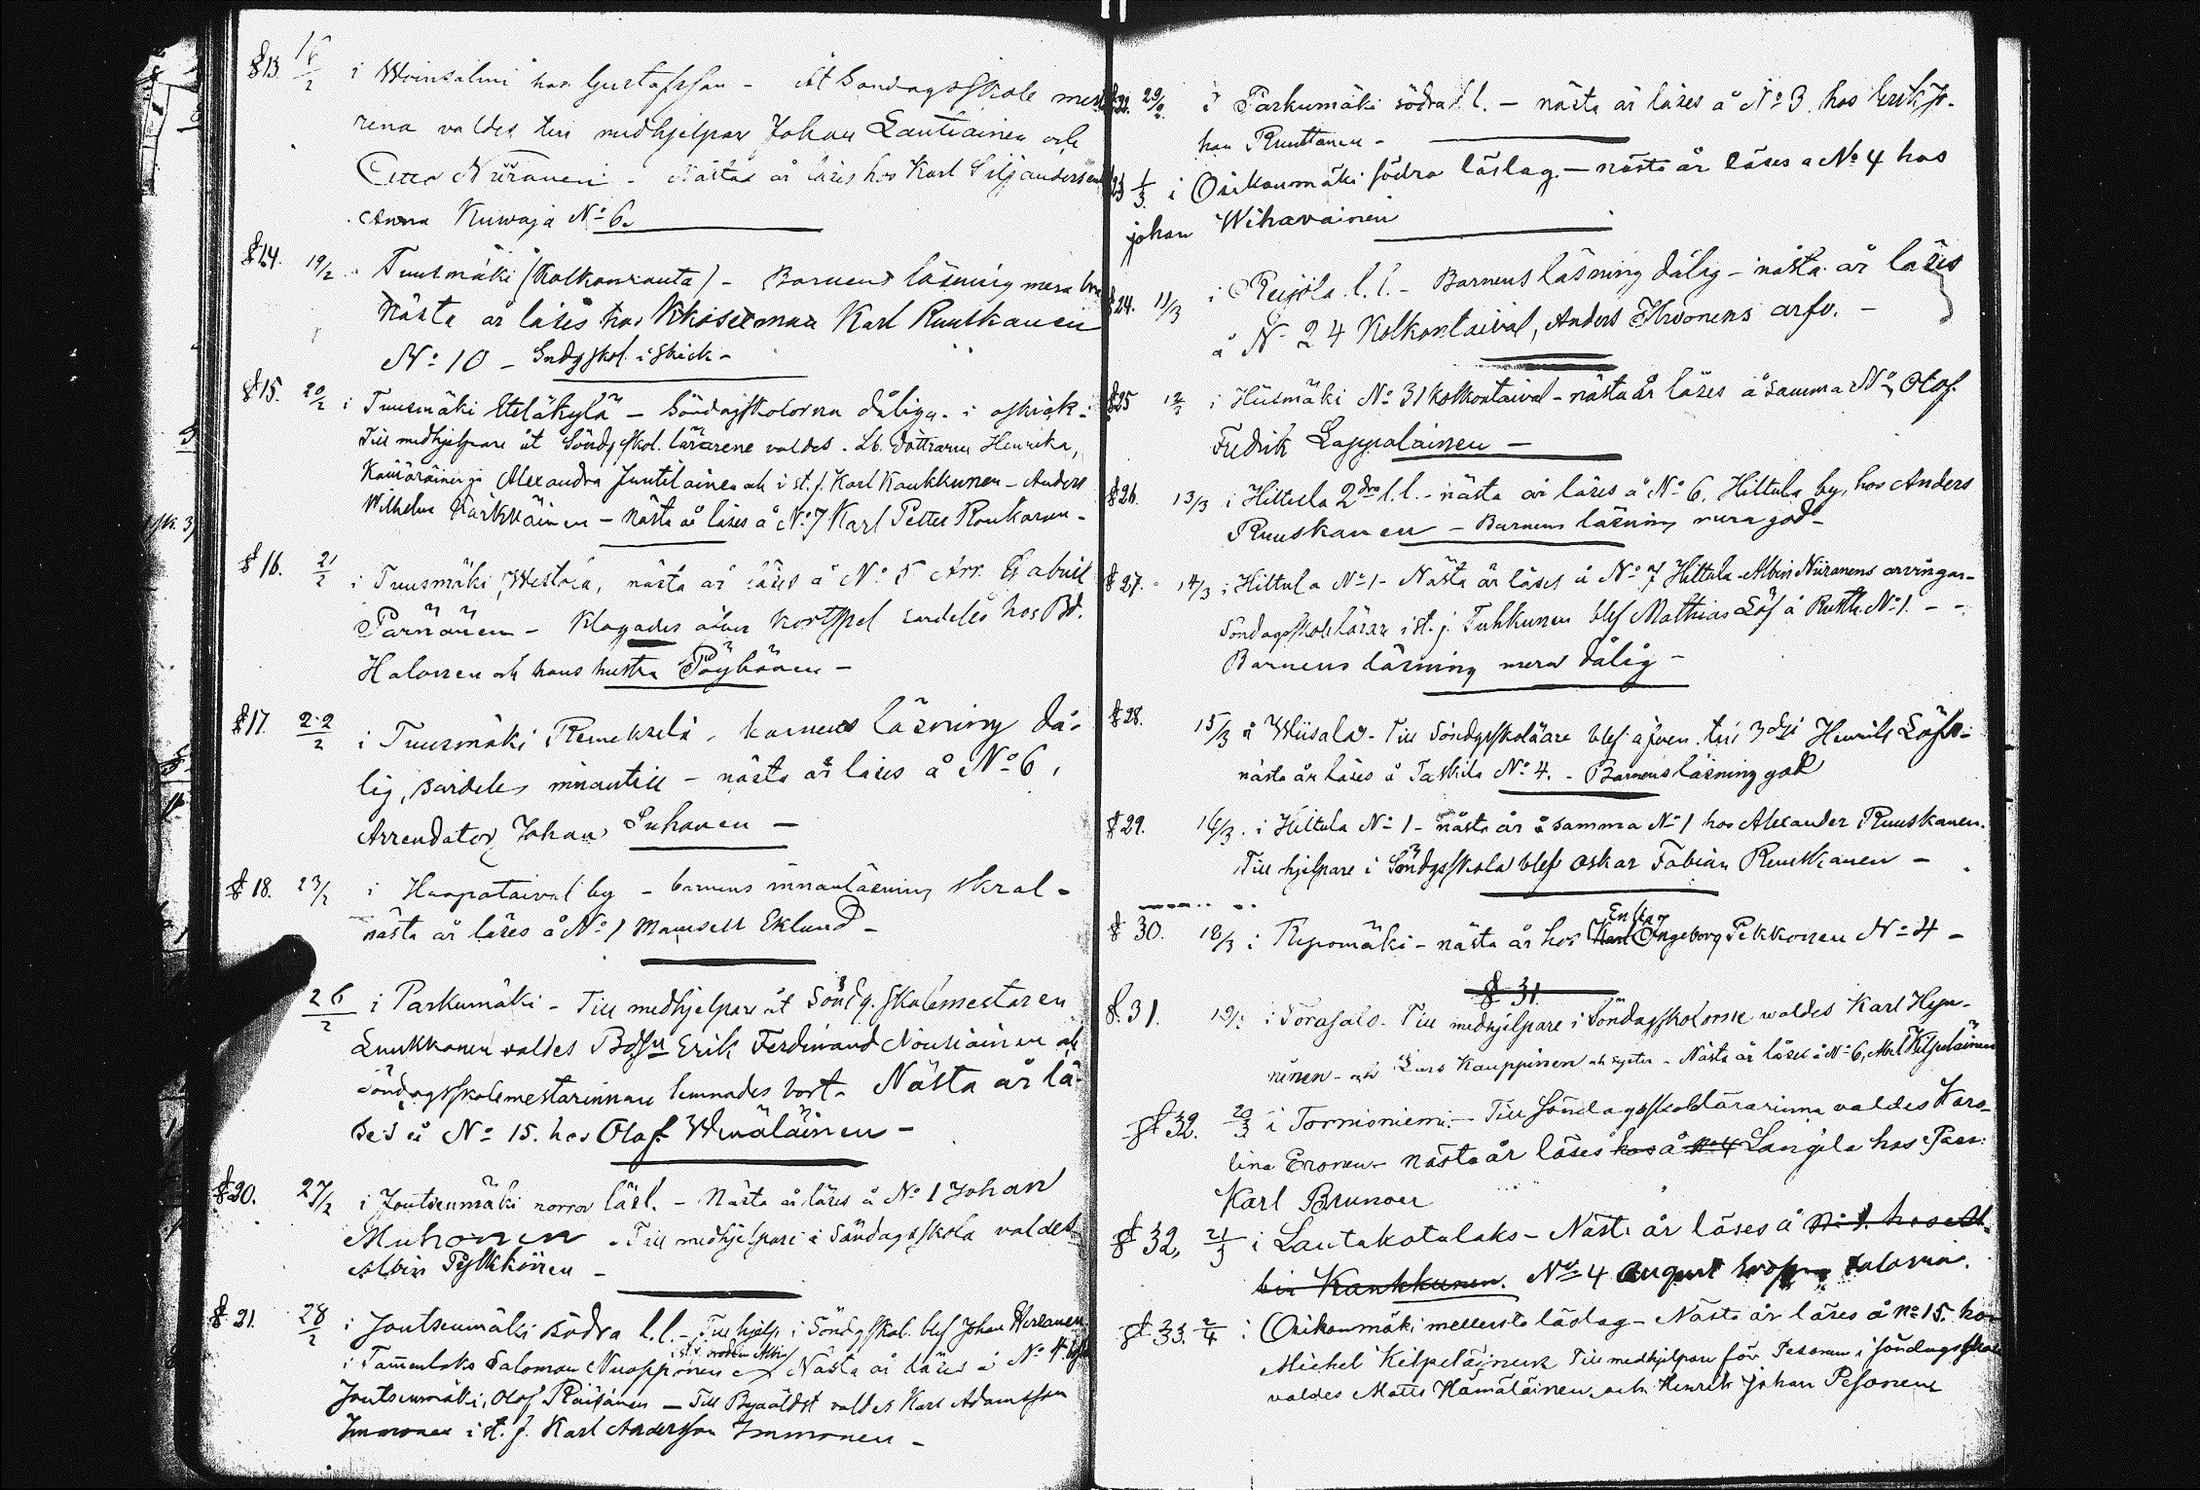 §13. 18/2 i Woinsalmi hos Gustafsson - At Söndagsskole mest
rena valdes till medhjelpare Johan Lautiainen och
Otto Niiranen - Nästa år läses hos Karl Siljandersen
Anna Kuwaja No 6.
§14. 19/2 Tuusmäki (Kolkonranta) - Barnens läsning mera bra
Nästa år läses hos Karl Ruuskanen
No 10 - Sndgskol. i skick -
§15. 20/2 i Tuusmäki Eteläkylä - Söndagskolorna dåliga i oskick.
Till medhjelpare åt Söndgskol. lärarene valdes Lb. dottrarna Henrika,
Alexandra Juutilainen och i st. f. Karl Kaukkunen - Anders
Wilhelm Kärkkäinen - Nästa år läses å No 7 Karl Petter Ronkanen -
§16. 21/2 i Tuusmäki, Westola, nästa år läses å No 5 Arr. Gabriel
Pärnänen - Klagades äfven kortspel hos Bd.
Halonen och hans hustru Pöyhönen -
§17. 22/2 i Tuusmäki Remekselä, barnens läsning då-
lig, särdeles innantill - nästa år läses å No 6,
Arrendator Johan Suhonen -
§18. 23/2 i Haapataival by - barnens innanläsning skral -
nästa år läses å No 1 Mamsell Eklund -
26/2 i Parkumäki - Till medhjelpare åt Söndg. skolemestaren
Luukkonen valdes Bdsn Erik Ferdinand Nousiainen och
Söndagsskolemestarinnan lemnades bort - Nästa år lä-
ses å No 15. hos Olof Winäläinen -
§20. 27/2 i Joutsenmäki norra läsl. - Nästa år läses å No 1 Johan
Muhonen - Till medhjelpare i Söndagsskola valdes
Albin Pylkkönen -
§21. 28/2 i Joutsenmäki södra l.l. - Till hjelp i Söndgskol. blef Johan
i Tammenlaks Salomon Nuopponen Nästa år läses å No 4
Joutsenmäki, Olof Räisänen - Till Byäldst valdes Karl Adamsson
Immonen i st. f. Karl Andersson Immonen -
§22. 29/2 i Parkumäki södra l.l. - nästa år läses å No 3 hos Erik Jo-
han Ruuttanen -
23 1/3 i Orikonmäki södra läslag. - nästa år läses å No 4 hos
Johan Wihavainen
§24. 11/3 i Reijola l.l. - Barnens läsning dålig - nästa år läses
å No 24 Kolkontaival, Anders Ihvonens arfv. -
§25 12/3 i Hiismäki No 31 Kolkontaival - nästa år läses å samma No, Olof
Fredrik Lappalainen -
§26. 13/3 i Hiltula 2dra l.l. - nästa år läses å No 6. Hiltula by, hos Anders
Ruuskanen - Barnens läsning mera god -
§27. 14/3 i Hiltula No 1 - Nästa år läses å No 7 Hiltula Albin Niiranens arvingar -
Söndagsskolelärare i st. f. Tuhkunen blef Mathias Löf å Ruth. No 1. - -
Barnens läsning mera dålig -
§28. 15/3 å Wiisala - Till Söndgsskolläare blef äfven till 3dje Henrik Löf
nästa år läses å Taskila No 4. - Barnens läsning god
§29. 16/3. i Hiltula No 1 - nästa år å samma No 1 hos Alexander Ruuskanen.
Till hjelpare i Söndgsskola blef Oskar Fabian Ruuskanen -
§30. 18/3 i Repomäki - nästa år hos Karl Enkan Ingeborg Pekkonen No 4 -
§31.
§.31. 19/3 i Torasalo. Till medhjelpare i Söndagsskolorne valdes Karl Hyn-
ninen - och Lars Kauppinen och syster - Nästa år läses å No 6, Kilpeläinen
§32. 20/3 i Tornioniemi. - Till Söndagsskolelärarinna valdes Karo-
lina Eronen - nästa år läses hos å No 4 Langila hos
Karl Brunou
§32, 21/3 i Lautakotalaks - Nästa år läses å No 1. hos Al-
bin Kaukkunen. No 4 August
§33. 2/4 i Orikonmäki mellersta läslag - Nästa år läses å No 15. hos
Michel Kilpeläinen Till medhjelpare för Pesonen i Söndagsskola
valdes Matts Hämäläinen och Henrik Johan Pesonen